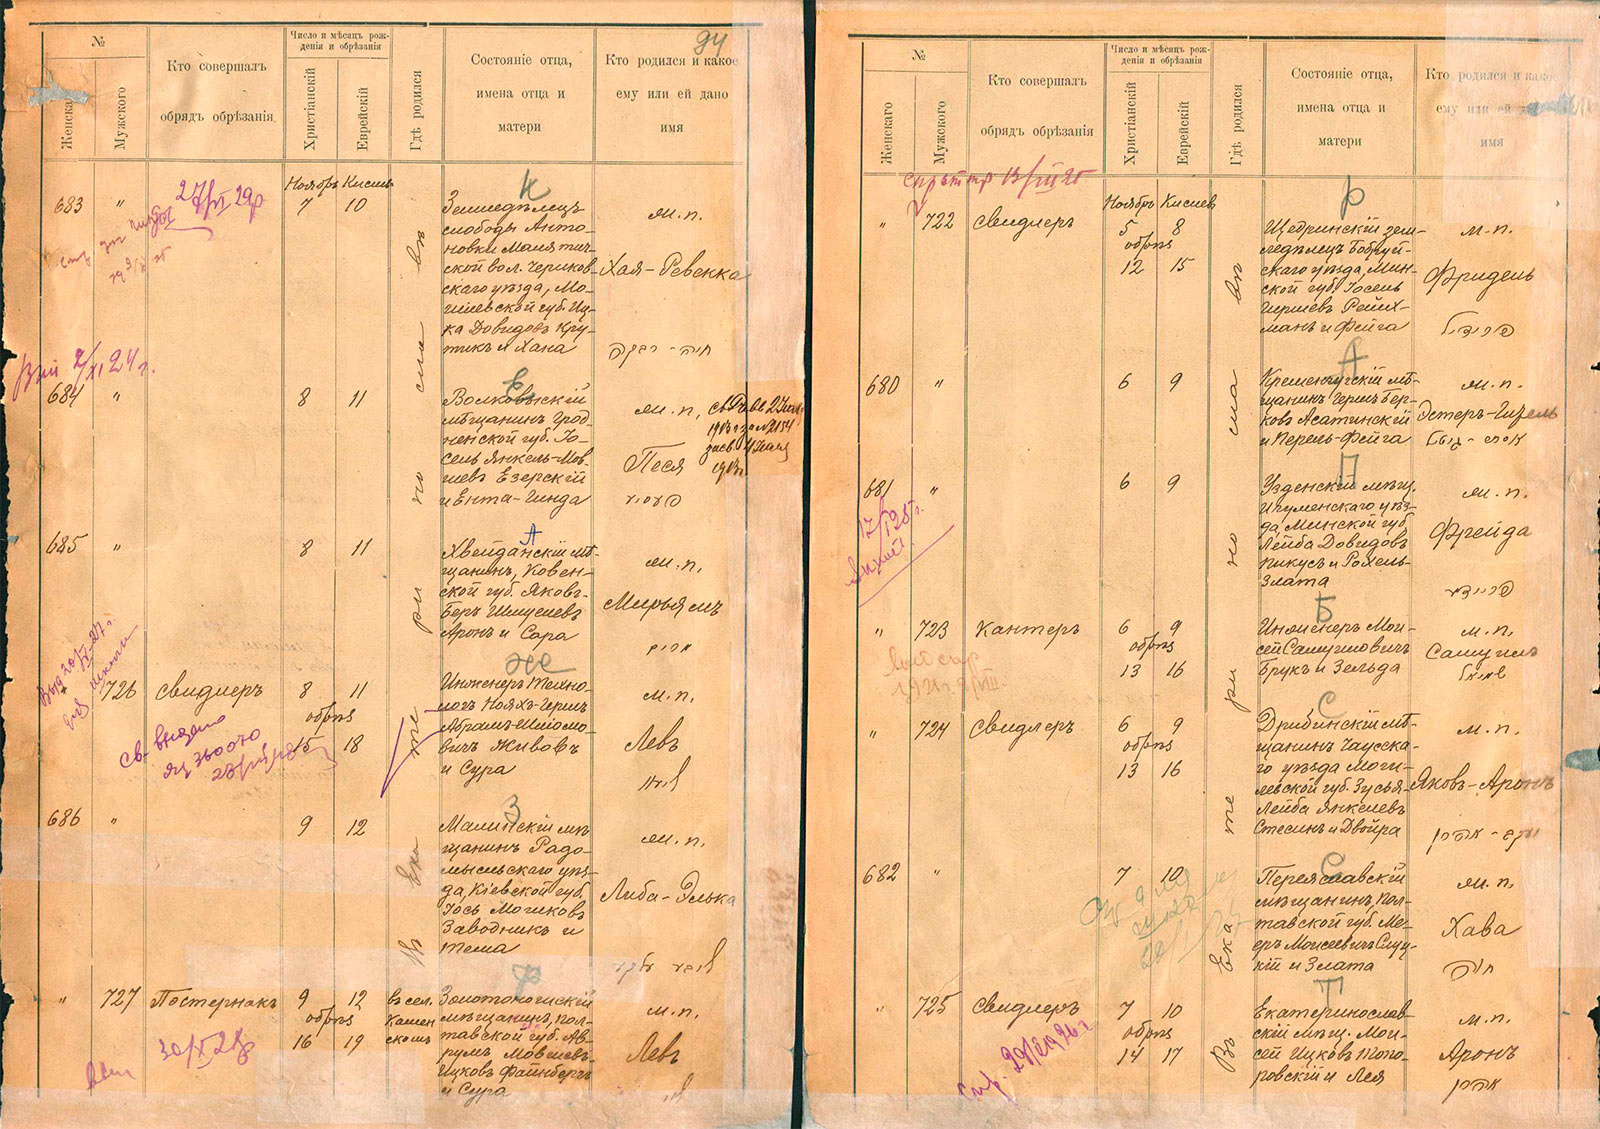 94
№
Женскаго
Мужского
Кто совершалъ
обрядъ обрѣзанія
Число и мѣсяцъ рож-
денія и обрѣзанія
Христіанскій
Еврейскій
Гдѣ родился
Состояніе отца,
имена отца и
матери
Кто родился и какое
ему или ей дано
имя
Ноябрь Кислевъ
683 " 27/VI 29р 7 10
К
Земледѣлецъ
слободы Анто-
новки Малятич-
ской вол. Чериков-
скаго уѣзда, Мо-
гилевской губ. Иц-
ка Довидовъ Кру-
тикъ и Хана
м.п.
Хая-Ревекка
חיה-רבקה
2/XI 24 г.
684 " 8 11
Е
Волковыскій
мѣщанинъ Грод-
ненской губ. Іо-
сель Янкель-Мов-
шевъ Езерскій
и Ента-Гинда
м.п.
Песя
685 " 8 11
А
Хвейданскій мѣ-
щанинъ, Ковен-
ской губ. Яковъ-
Беръ Шмуелевъ
Аронъ и Сара
м.п.
Мирьямъ
מרים
726 Свидлеръ 8 11
обрѣз
15 18
Ж
Инженеръ Техно-
логъ Нояхъ-Гершъ
Абрамъ-Шлiомо-
вичъ Живовъ
и Сура
м.п.
Левъ
686 " 9 12
З
Малинскій мѣ-
щанинъ Радо-
мысльскаго уѣз-
да, Кіевской губ.
Іось Мошковъ
Заводникъ и
Тема
м.п.
Либа-Элька
Въ Ека те ри но сла вѣ
" 727 Постернакъ 9 12
обрѣз
16 19
въ сел.
Камен
скомъ
Ф
Золотоношскій
мѣщанинъ, Пол-
тавской губ. Ав-
румъ Мовшевъ-
Ицковъ Файнбергъ
и Сура
м.п.
Левъ
30/XI 28
№
Женскаго
Мужского
Кто совершалъ
обрядъ обрѣзанія
Число и мѣсяцъ рож-
денія и обрѣзанія
Христіанскій
Еврейскій
Гдѣ родился
Состояніе отца,
имена отца и
матери
Кто родился и какое
ему или ей дано
имя
Ноябрь Кислевъ
" 722 Свидлеръ 5 8
обрѣз
12 15
Р
Щедринскій зем-
ледѣлецъ Бобруй-
скаго уѣзда, Мин-
ской губ. Іосель
Гиршевъ Рейх-
манъ и Фейга
м.п.
Фридель
פרידל
680 " 6 9
А
Кременчугскій мѣ-
щанинъ Гершъ Бер-
ковъ Асатинскій
и Перель-Фейга
м.п.
Эстеръ-Гизель
681 " 6 9
17/I 925 г.
П
Узденскій мѣщ.
Игуменскаго уѣз-
да, Минской губ.
Лейба Довидовъ
Пикусъ и Рохель-
Злата
м.п.
Фрейда
" 723 Кантеръ 6 9
обрѣз
13 16
Б
Инженеръ Мои-
сей Самуиловичъ
Брукъ и Зельда
м.п.
Самуилъ
שמואל
" 724 Свидлеръ 6 9
обрѣз
13 16
С
Дрибинскій мѣ-
щанинъ Чаусска-
го уѣзда Моги-
левской губ. Зусья-
Лейба Янкелевъ
Стесинъ и Двойра
м.п.
Яковъ-Аронъ
יעקב-אהרן
682 " 7 10
С
Переяславскій
мѣщанинъ, Пол-
тавской губ. Ме-
еръ Моисеевичъ Слуц-
кій и Злата
м.п.
Хава
חוה
" 725 Свидлеръ 7 10
обрѣз
14 17
Т
Екатеринослав-
скій мѣщ. Мои-
сей Ицковъ Топо-
ровскій и Лея
м.п.
Аронъ
אהרן
Въ Ека те ри но сла вѣ